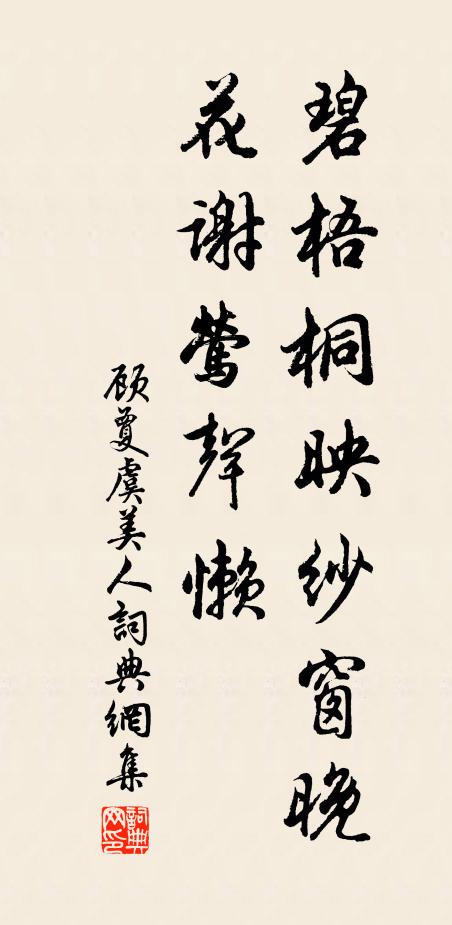 碧梧桐映纱窗晚
花谢莺声懒
顾敻虞美人詞典網集
詞典网印